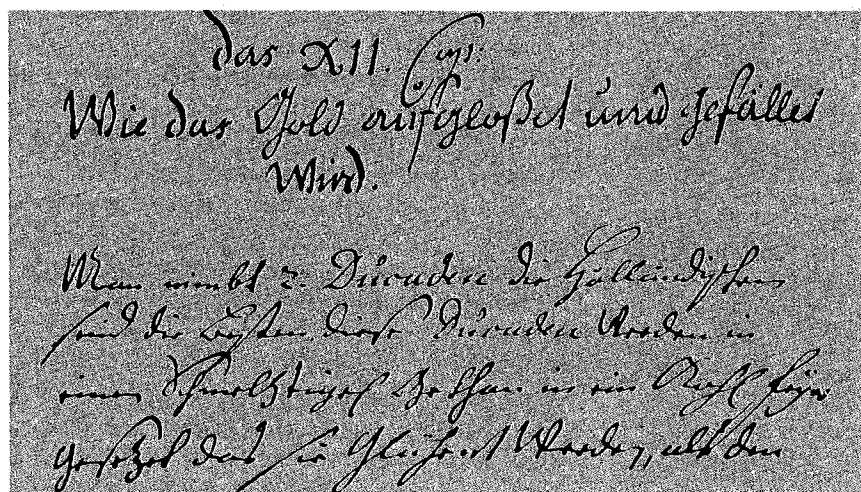 das XII. Cap:
Wie das Gold aufgloßet und gefället
Wird.
Man nimbt 2. Ducaden die Holländischen
seind die besten, diese Ducaden Werden in
einen Schmeltztigel gethan in ein Kohl feüer
gesetzet das sie Glühent Werden, als den